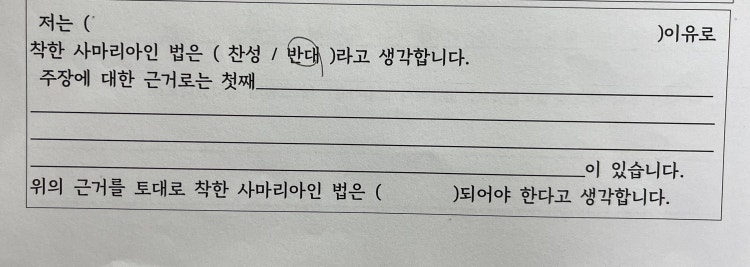 저는 (                    )이유로
착한 사마리아인 법은 ( 찬성 / 반대 )라고 생각합니다.
주장에 대한 근거로는 첫째
이 있습니다.
위의 근거를 토대로 착한 사마리아인 법은 (          )되어야 한다고 생각합니다.